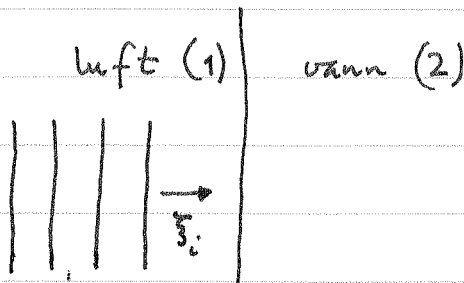 luft (1) vann (2)
ξᵢ